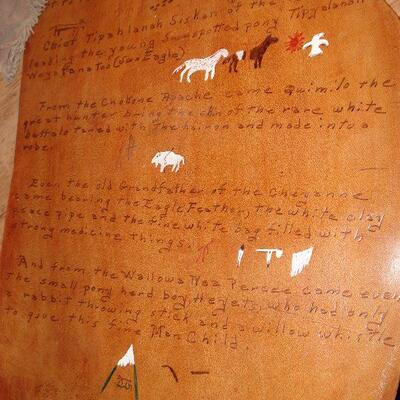 Chief Tipahlanah Siskan of the
leading the young Snowspotted pony Tipyalanah
Wayatana Too (Sun Eagle)
From the Chokone Apache came Quimilo the
great hunter bring the skin of the rare white
buffalo tanned with the hair on and made into a
robe.
Even the old Grandfather of the Cheyenne
came bearing the Eagle Feather, the white clay
peace pipe and the fine white bag filled with
strong medicine things.
And from the Wallowa Nez Percee came even
the small pony herd boy, who had only
a rabbit throwing stick and a willow whistle
to give this fine Man Child.